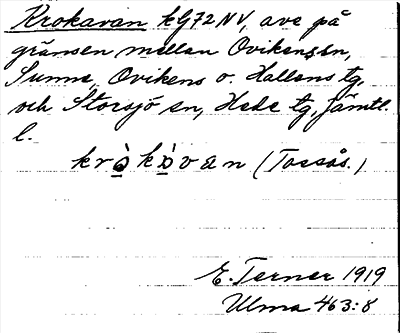 Krokavan kG72NV, ave på
gränsen mellan Ovikens sn,
Sunne, Ovikens o. Hallens tg,
och Storsjö sn, Hede tg, Jämtl.
l.
kròkòvan (Tossås.)
E. Terner 1919
Ulma 463:8